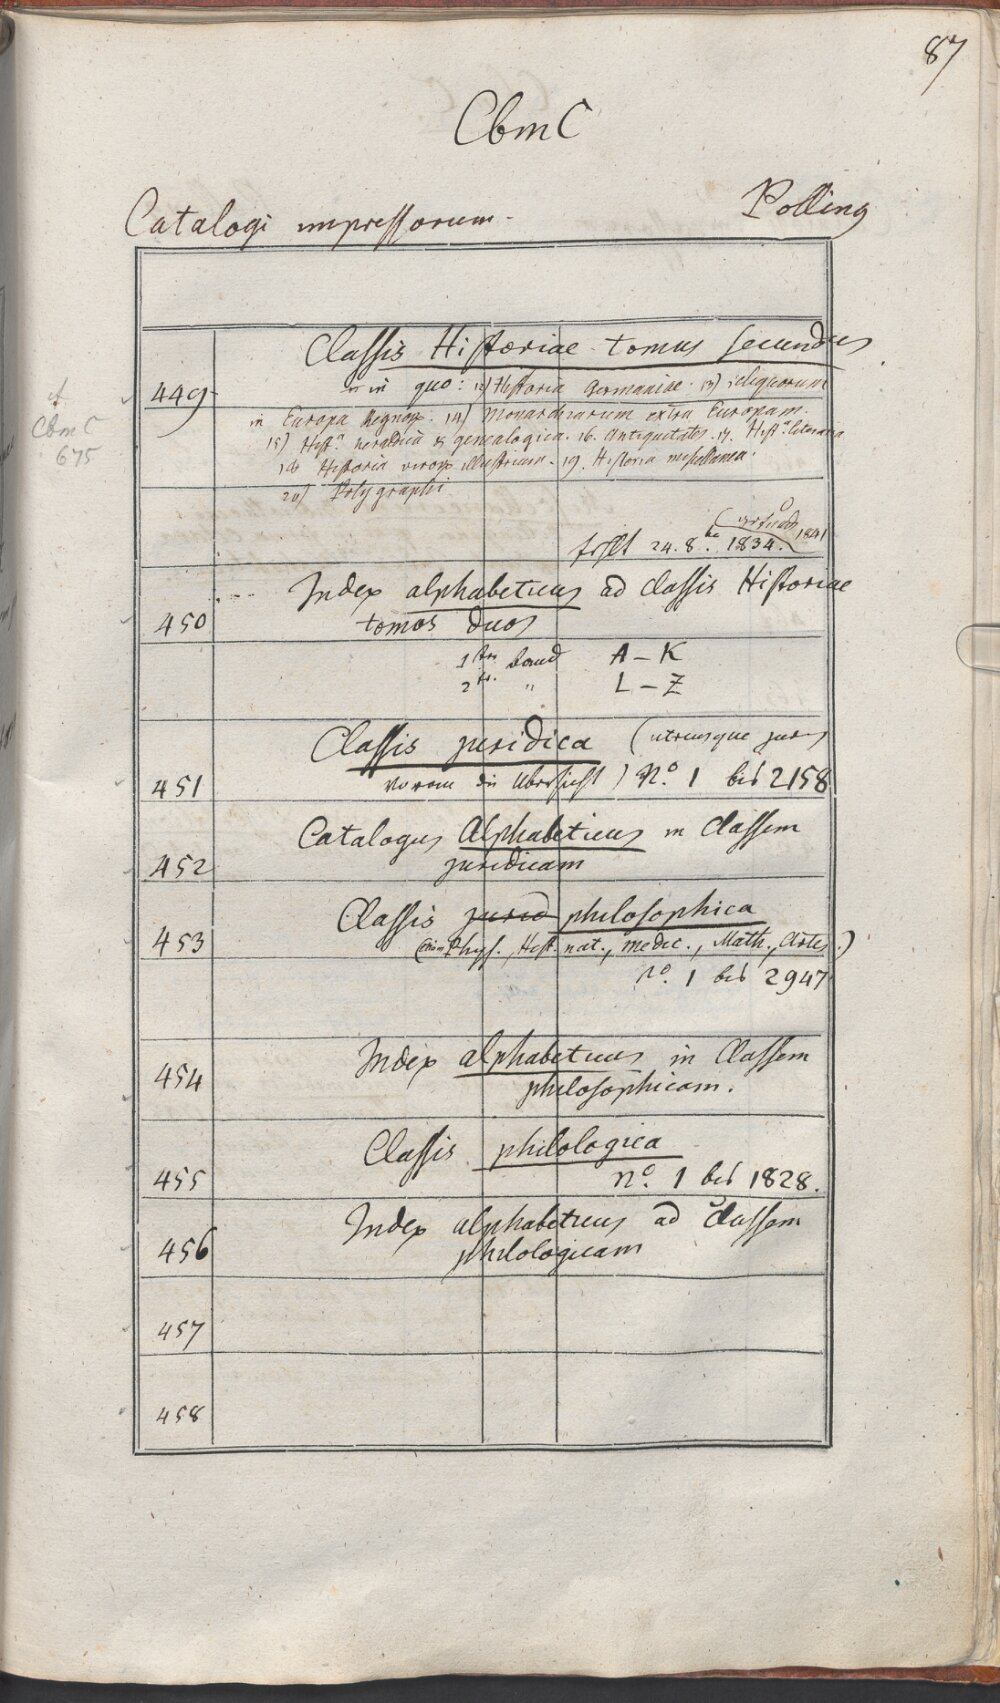 87
CbmC
Catalogi impressorum. Polling
Classis Historiae tomus secundus
449 in quo: 12) Historia Germaniae. 13) reliquorum
in Europa Regnor. 14) Monarchiarum extra Europam.
15) Hist.a heraldica & genealogica. 16. Antiquitates. 17. Hist.a literaria
18 Historia viror. illustrium. 19. Historia miscellanea.
20) Polygraphi
cf.
CbmC
675
1841
fehlt 24. 8.br 1834.
Index alphabeticus ad Classis Historiae
450 tomos duos
1ter Band A – K
2ter. " L – Z
Classis juridica (utriusque juris
451 voran die Übersicht) No. 1 bis 2158
Catalogus Alphabeticus in Classem
452 juridicam
Classis jurid philosophica
453 Phys., Hist. nat., medic., Math., Artes.)
No. 1 bis 2947
Index alphabeticus in Classem
454 philosophicam.
Classis philologica
455 no. 1 bis 1828.
Index alphabeticus ad Classem
456 philologicam
457
458